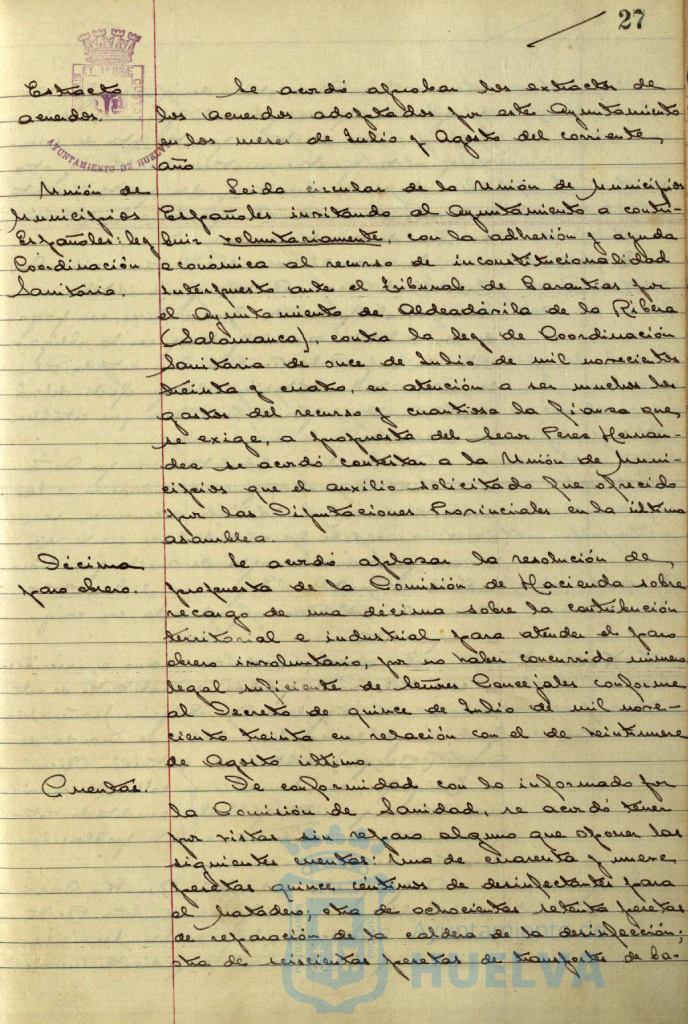 27
Extracto
acuerdos.
Se acordó aprobar los extractos de
los acuerdos adoptados por este Ayuntamiento
en los meses de Julio y Agosto del corriente
año
Unión de
Municipios
Españoles: ley
Coordinación
Sanitaria.
Leida circular de la Unión de Municipios
Españoles invitando al Ayuntamiento a contri-
buir voluntariamente, con la adhesión y ayuda
económica al recurso de inconstitucionalidad
interpuesto ante el Tribunal de Garantías por
el Ayuntamiento de Aldeadávila de la Ribera
(Salamanca), contra la ley de Coordinación
Sanitaria de once de Julio de mil novecientos
treinta y cuatro, en atención a ser muchos los
gastos del recurso y cuantiosa la fianza que
se exige, a propuesta del Señor Peres Hernan-
dez se acordó contestar a la Unión de Muni-
cipios que el auxilio solicitado fue ofrecido
por las Diputaciones Provinciales en la última
asamblea.
Décima
paro obrero.
Se acordó aplazar la resolución de
propuesta de la Comisión de Hacienda sobre
recargo de una décima sobre la contribución
territorial e industrial para atender el paro
obrero involuntario, por no haber concurrido número
legal suficiente de Señores Concejales conforme
al Decreto de quince de Julio de mil nove-
ciento treinta en relación con el de veintinueve
de Agosto último.
Cuentas.
De conformidad con lo informado por
la Comisión de Sanidad, se acordó tener
por vistas sin reparo alguno que oponer las
siguientes cuentas: Una de cuarenta y nueve
pesetas quince céntimos de desinfectantes para
el Matadero; otra de ochocientas setenta pesetas
de reparación de la caldera de la desinfección;
otra de seiscientas pesetas de transportes de ba-
AYUNTAMIENTO DE HUELVA
HUELVA